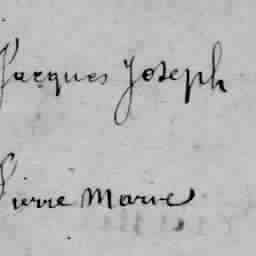 Jacques Joseph
Pierre Marie